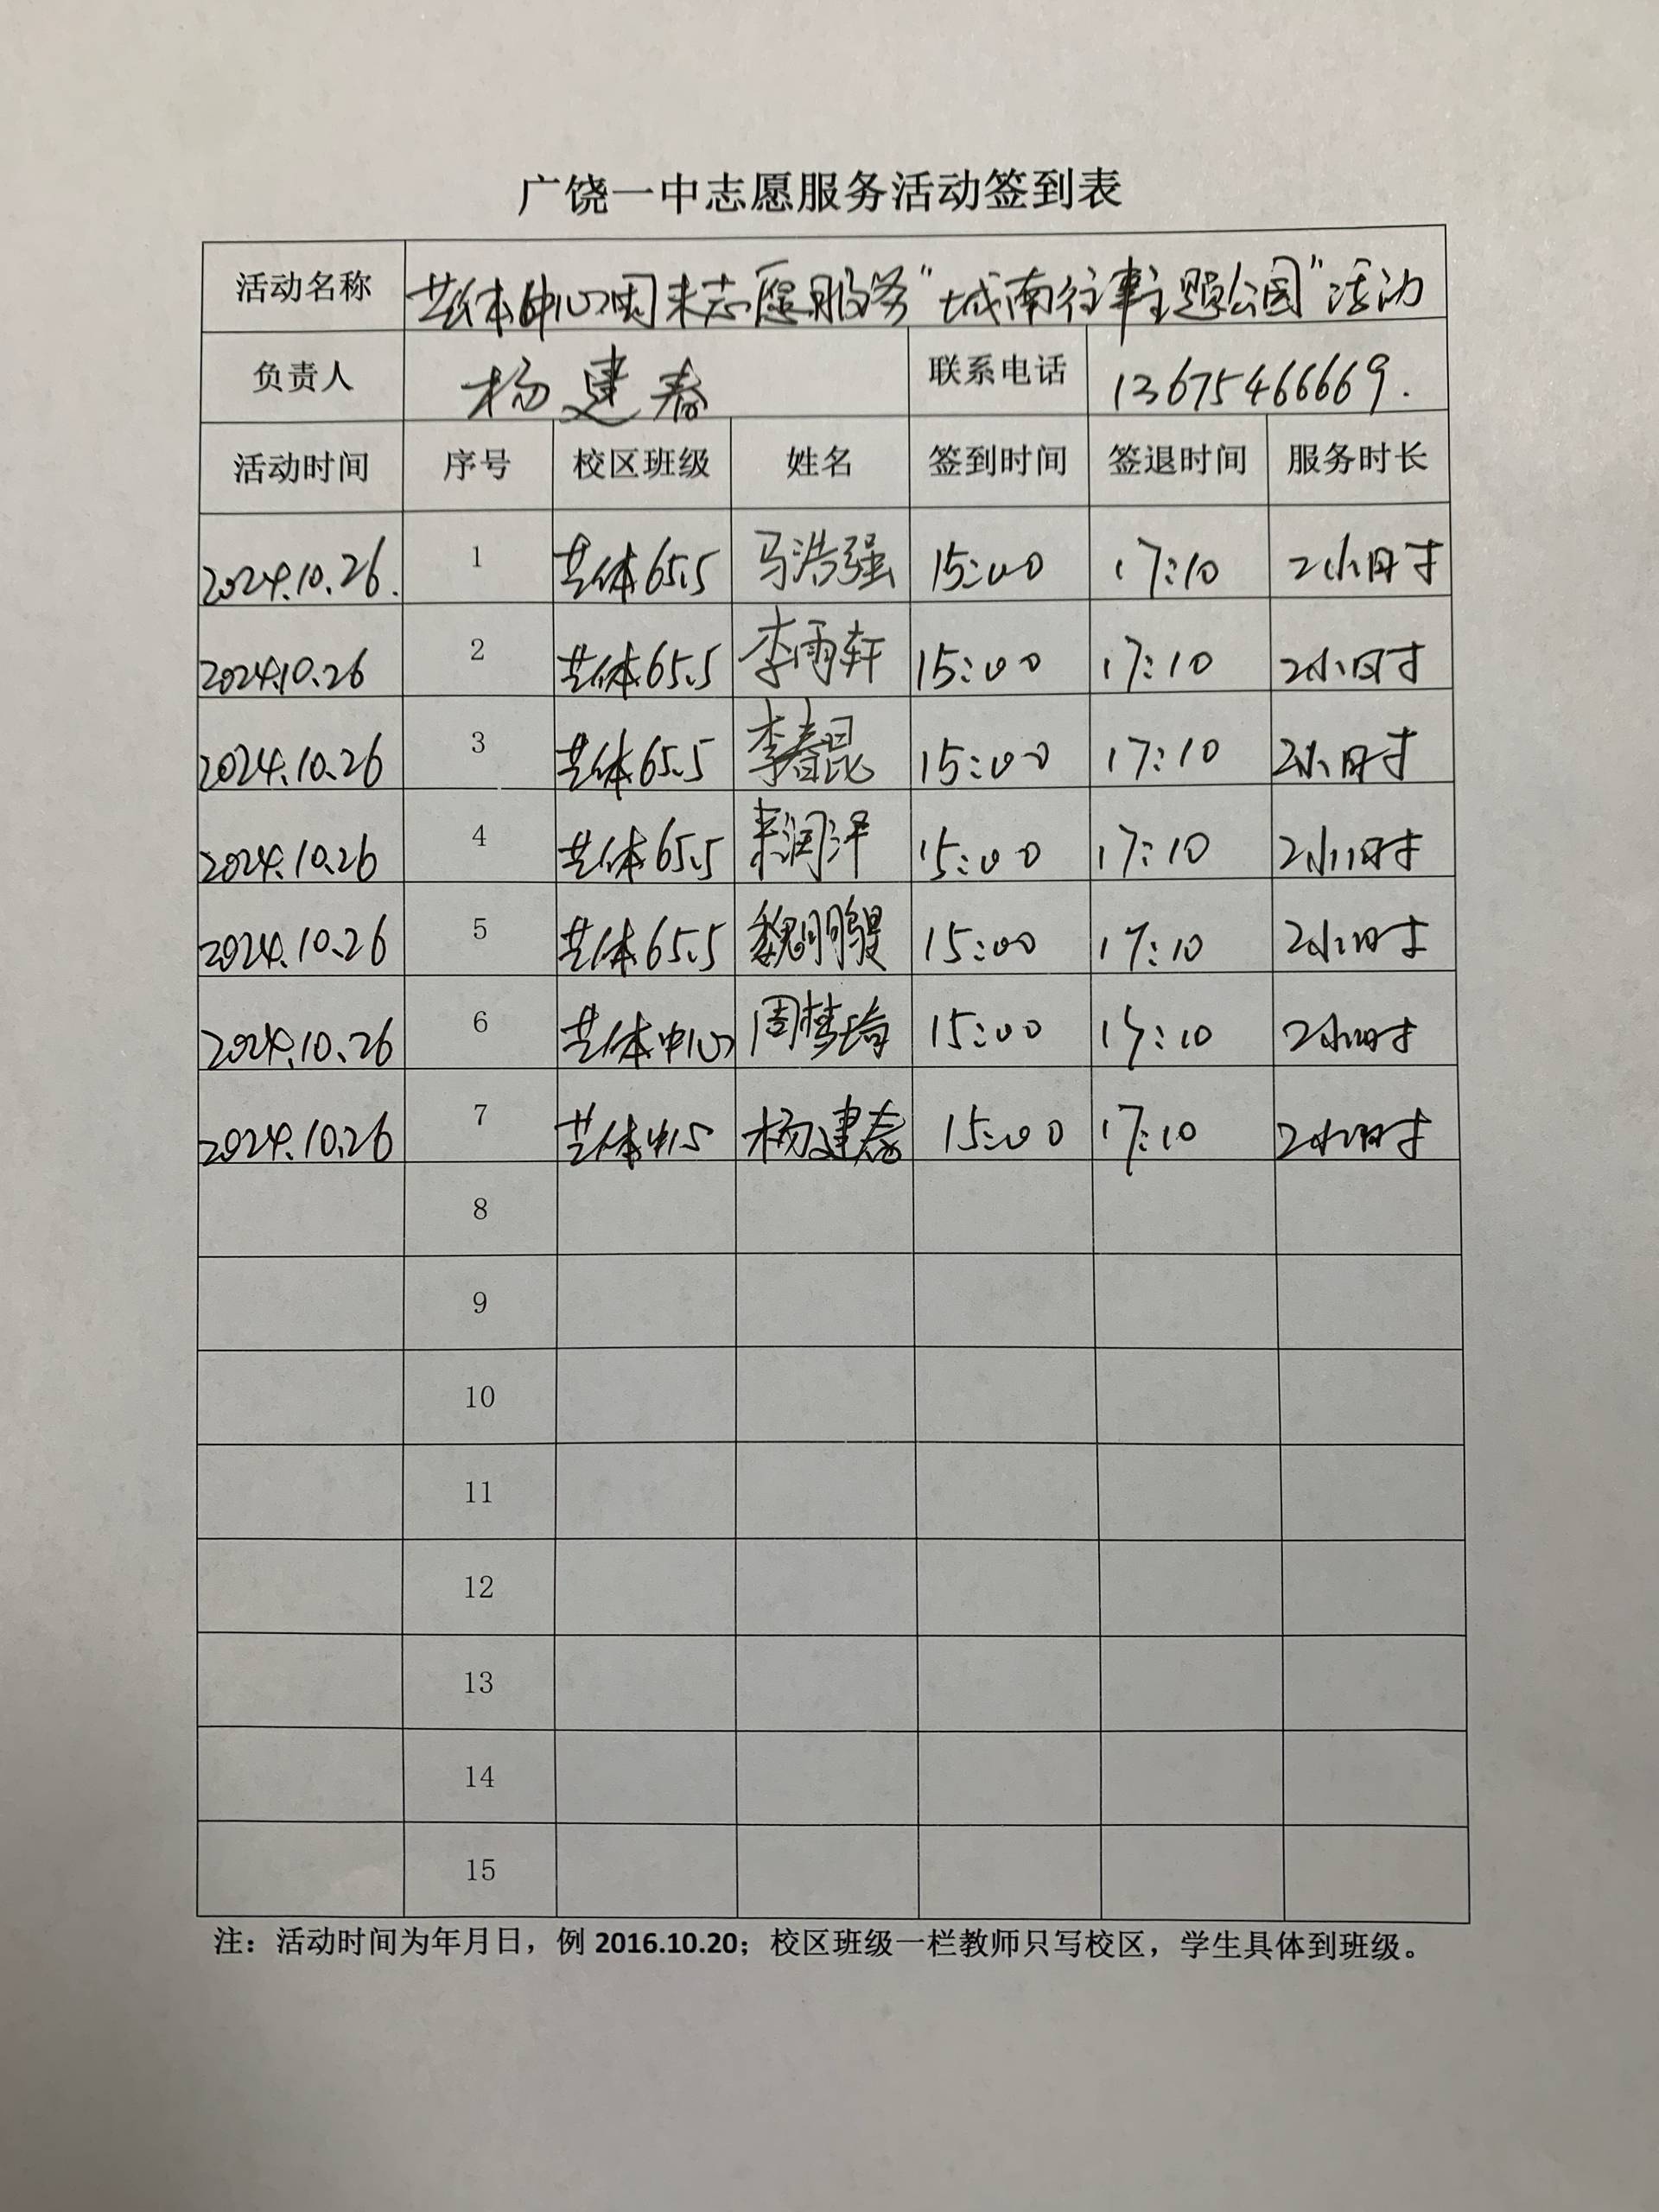 广饶一中志愿服务活动签到表
活动名称 艺体中心周末志愿服务“城南往事主题公园”活动
负责人 杨建春 联系电话 13675466669.
活动时间 序号 校区班级 姓名 签到时间 签退时间 服务时长
2024.10.26. 1 艺体65.5 马浩强 15:00 17:10 2小时
2024.10.26 2 艺体65.5 李雨轩 15:00 17:10 2小时
2024.10.26 3 艺体65.5 李春昆 15:00 17:10 2小时
2024.10.26 4 艺体65.5 15:00 17:10 2小时
2024.10.26 5 艺体65.5 15:00 17:10 2小时
2024.10.26 6 艺体中心 周梦琦 15:00 17:10 2小时
2024.10.26 7 艺体中心 杨建春 15:00 17:10 2小时
8
9
10
11
12
13
14
15
注：活动时间为年月日，例 2016.10.20；校区班级一栏教师只写校区，学生具体到班级。